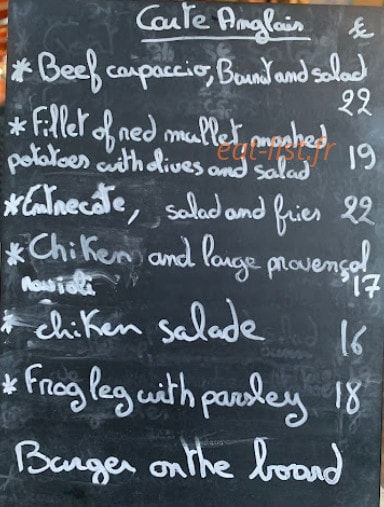 Carte Anglais €
* Beef carpaccio, Burrat and salad
22
* Fillet of red mullet, mashed
potatoes with olives and salad 19
eat-list.fr
* Entrecote, salad and fries 22
* Chiken and large provençal
ravioli 17
* chiken salade 16
* Frog leg with parsley 18
Burger on the board